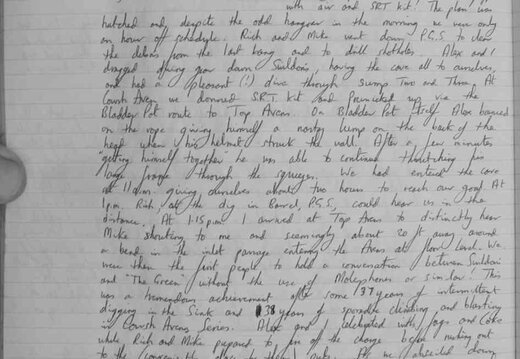 with air and SRT kit! The plan was
hatched and, despite the odd hangover in the morning we were only
an hour off schedule. Rich and Mike went down P.G.S. to clear
the debris from the last bang and to drill shotholes. Alex and I
dragged diving gear down Swildons, having the cave all to ourselves,
and had a pleasant (!) dive through sump Two and Three. At
Cowsh Aven we donned S.R.T. kit and prusicked up via the
Bladder Pot route to Top Avens. On Bladder Pot itself Alex bounced
on the rope giving himself a nasty lump on the back of the
head when his helmet struck the wall. After a few minutes
"getting himself together" he was able to continue thrutching his
large frame through the squeezes. We had entered the cave
at 11am. giving ourselves about two hours to reach our goal. At
1pm. Rich at the dig in Barrel, P.G.S, could hear us in the
distance. At 1.15pm I arrived at Top Avens to distinctly hear
Mike shouting to me and seemingly about 20ft away around
a bend in the inlet passage entering the Avens at floor level. We
were then the first people to hold a conversation between Swildons
and "The Green" without the use of Molephones or similar! This
was a tremendous achievement after some 37 years of intermittent
digging in the Sink and 38 years of sporadic climbing and blasting
in Cowsh Avens Series. Alex and I celebrated with fags and Coke
while Rich and Mike prepared to fire off the charge before rushing out